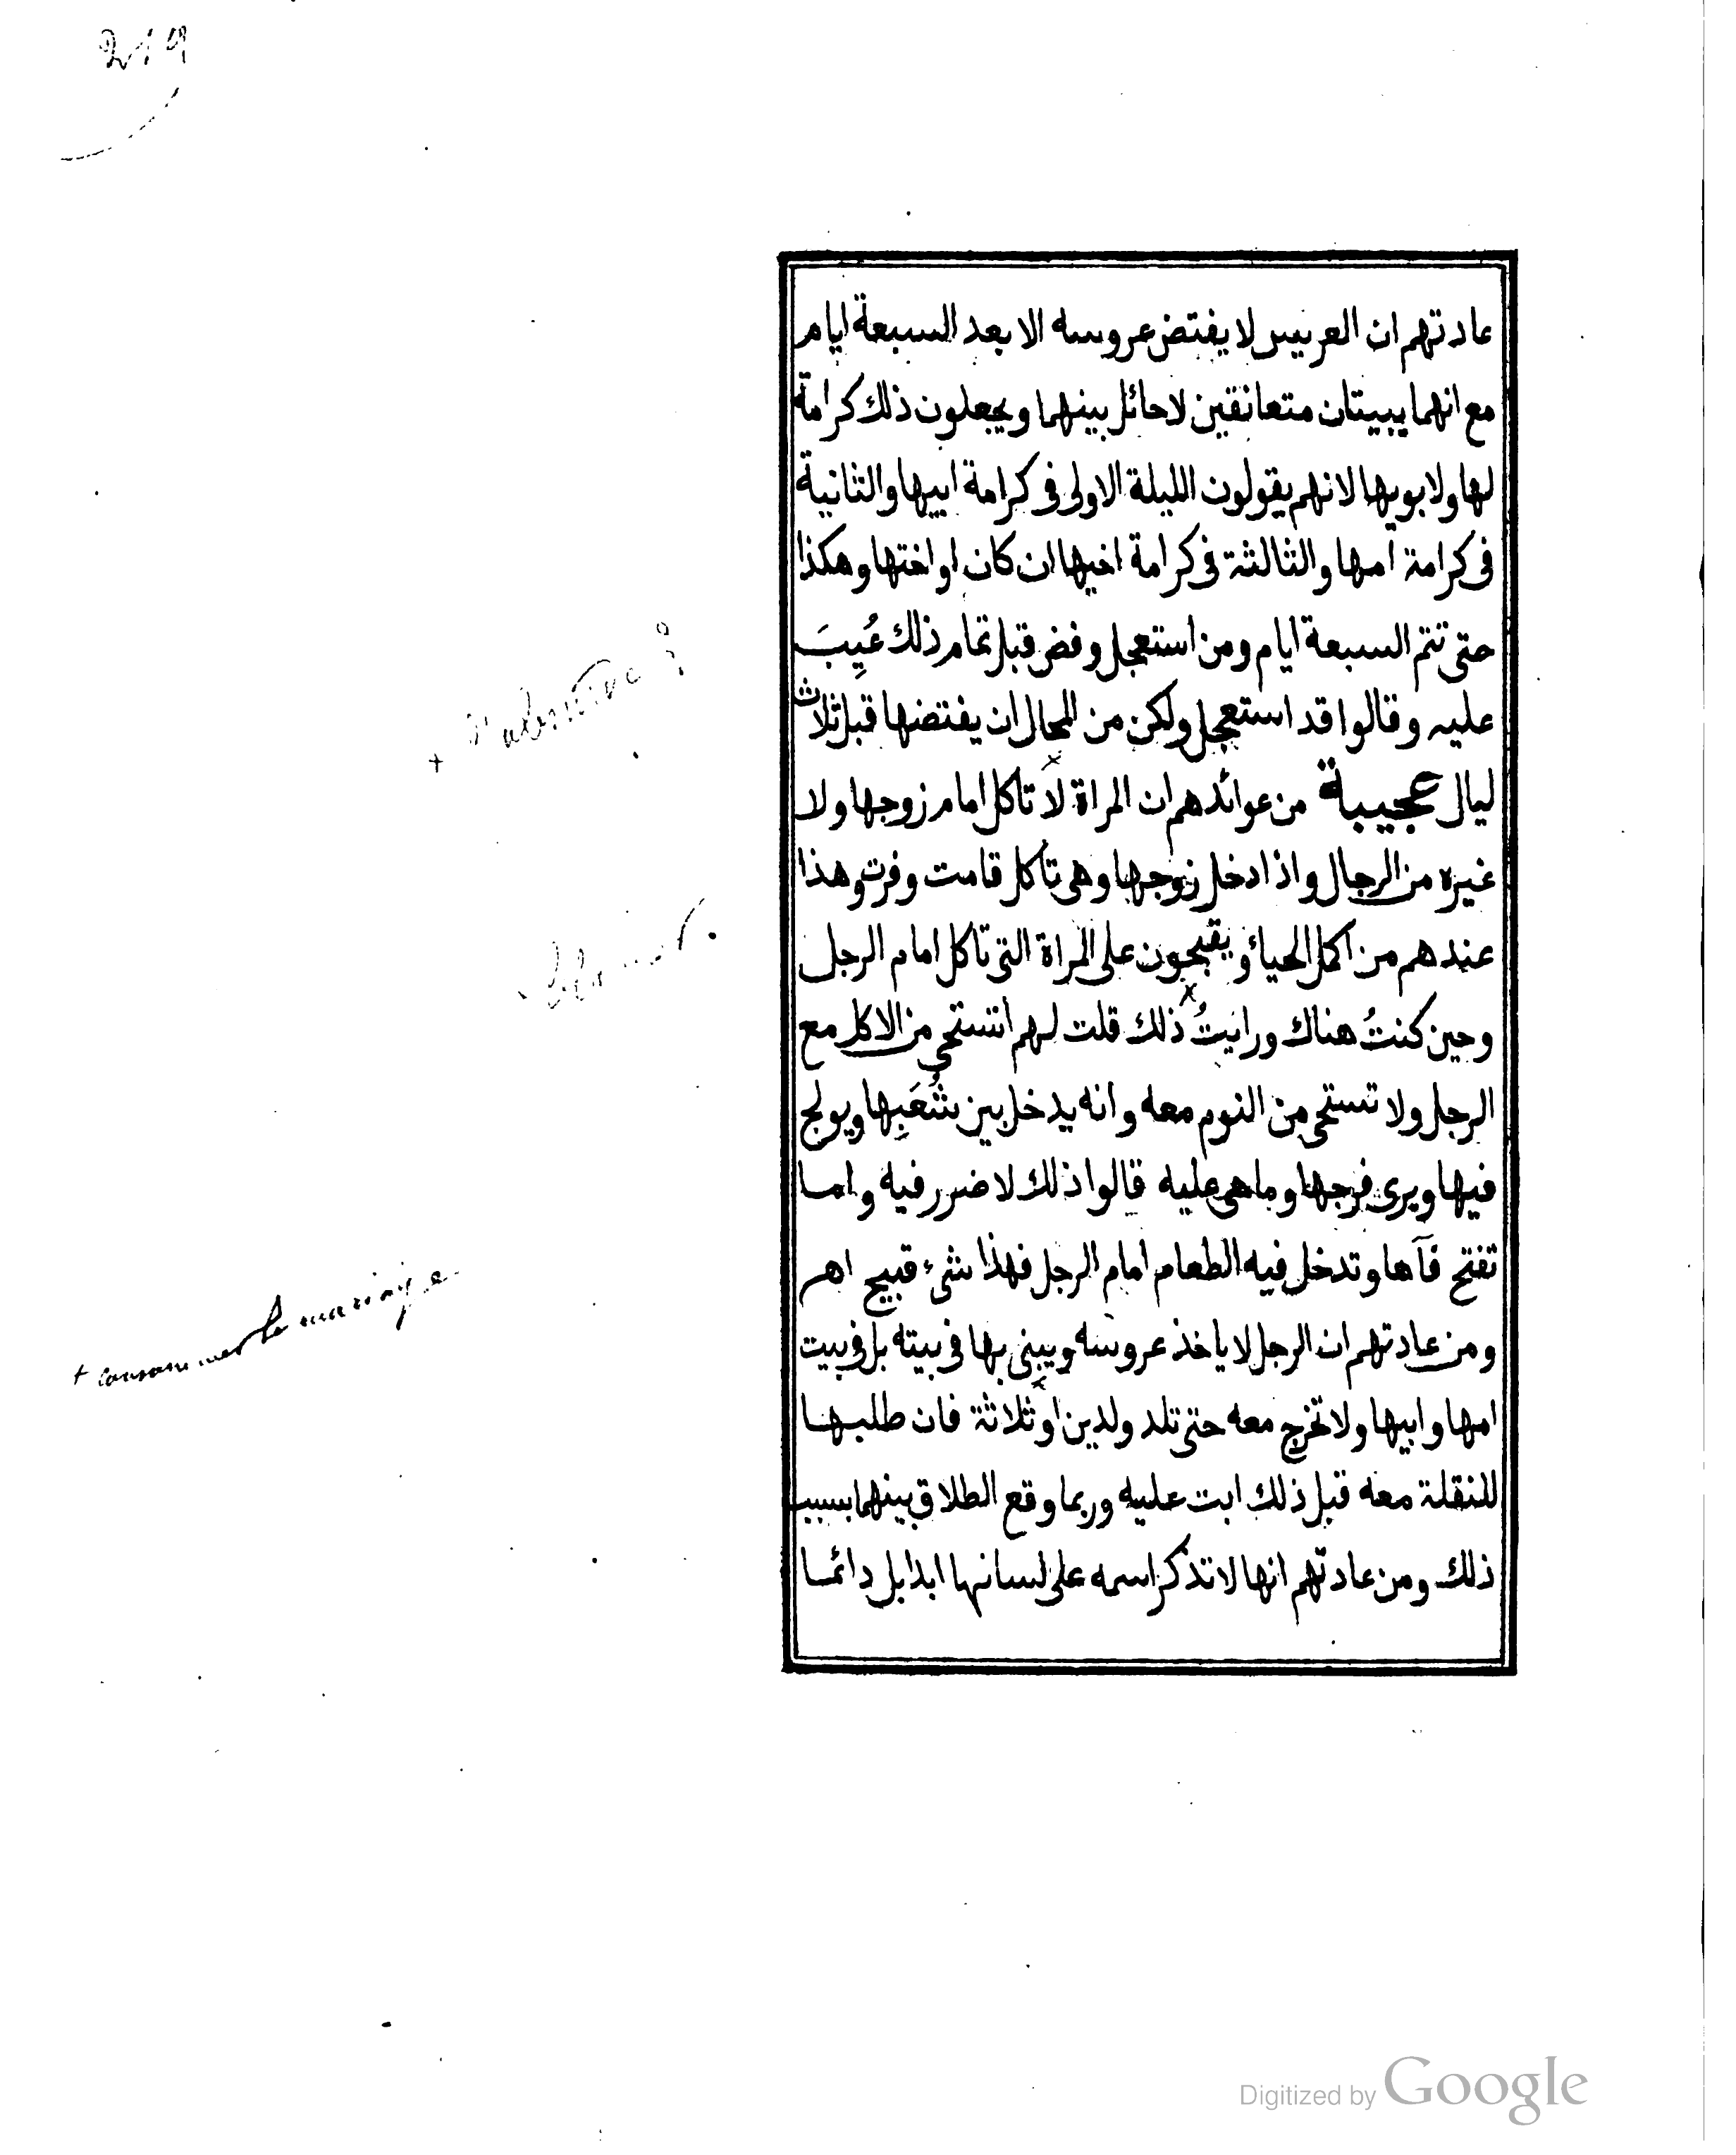 219
عادتهم ان العريس لا يفتض عروسه الا بعد السبعة ايام
مع انهما يبيتان متعانقين لا حائل بينهما ويجعلون ذلك كرامة
لها ولابويها لانهم يقولون الليلة الاولى فى كرامة ابيها والثانية
فى كرامة امها والثالثة فى كرامة اخيها ان كان او اختها وهكذا
حتى تتم السبعة ايام ومن استعجل وفض قبل تمام ذلك عُيِبَ
عليه وقالوا قد استعجل ولكن من المحال ان يفتضها قبل ثلاث
ليال عجيبة من عوائدهم ان المراة لا تاكل امام زوجها ولا
غيره من الرجال واذا دخل زوجها وهى تاكل قامت وفرت وهذا
عندهم من اكمل الحياء ويقبحون على المراة التى تاكل امام الرجل
وحين كنتُ هناك ورايتُ ذلك قلت لهم اتستحى من الاكل مع
الرجل ولا تستحى من النوم معه وانه يدخل بين شُعَبِها ويولج
فيها ويرى فرجها وما هى عليه قالوا ذلك لا ضرر فيه واما
تفتح فآها وتدخل فيه الطعام امام الرجل فهذا شىء قبيح اهر
ومن عادتهم ان الرجل لا ياخذ عروسه ويبنى بها فى بيته بل فى بيت
امها وابيها ولا تخرج معه حتى تلد ولدين او ثلاثة فان طلبها
للنقلة معه قبل ذلك ابت عليه وربما وقع الطلاق بينهما بسبب
ذلك ومن عادتهم انها لا تذكر اسمه على لسانها ابدا بل دائما
+
+ consommer le mariage
Digitized by Google